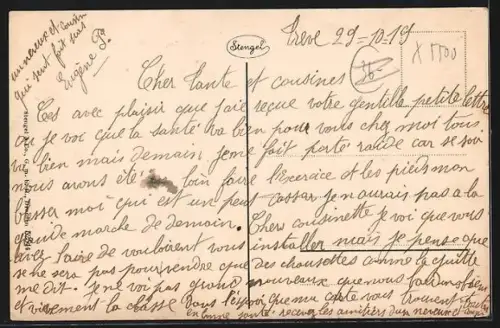 Stengel
Treve 29-10-19
X 1500
Cher tante et cousines
Ces avec plaisir que jaie reçue votre gentille petite lettre
je voi que la santé va bien pour vous chez moi tous
va bien mais demain, je me fait porté malade car se soir
nous avons été loin faire l'exercice et les pieds mon
casser moi qui est un peut cassar je n'aurais pas a la
grande marche de demain. Chere cousinette je voi que vous
avez l'aire de vouloirent vous installer mais je pense que
se ne sera pas pour vendre que des chaussettes comme la
me dit. Je ne voi pas grand nouveaux que nous
et vivement la classe Vous l'espoir que ma carte vous trouvent
en bonne santé recevez les amitiers d'un neveux et
un neveux et cousin
qui sent fait pas
Eugène P.